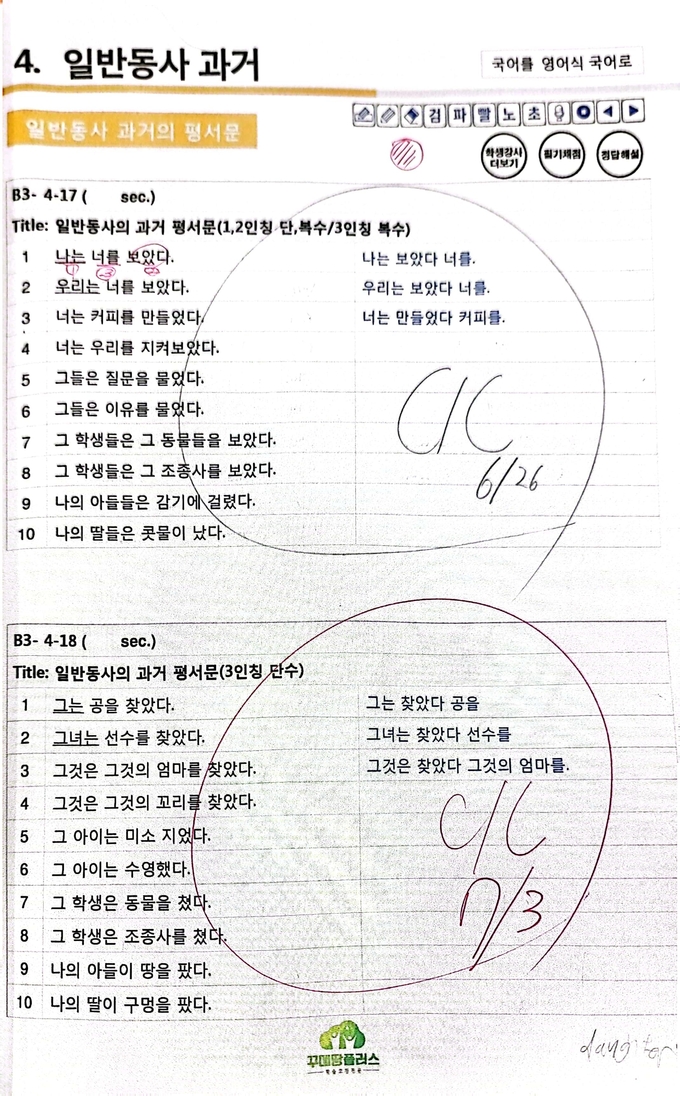 4. 일반동사 과거
국어를 영어식 국어로
일반동사 과거의 평서문
검 파 빨 노 초
학생강사 더보기
필기채점
정답해설
B3- 4-17 ( sec.)
Title: 일반동사의 과거 평서문(1,2인칭 단,복수/3인칭 복수)
1 나는 너를 보았다. 나는 보았다 너를.
2 우리는 너를 보았다. 우리는 보았다 너를.
3 너는 커피를 만들었다. 너는 만들었다 커피를.
4 너는 우리를 지켜보았다.
5 그들은 질문을 물었다.
6 그들은 이유를 물었다.
7 그 학생들은 그 동물들을 보았다.
8 그 학생들은 그 조종사를 보았다.
9 나의 아들들은 감기에 걸렸다.
10 나의 딸들은 콧물이 났다.
6/26
B3- 4-18 ( sec.)
Title: 일반동사의 과거 평서문(3인칭 단수)
1 그는 공을 찾았다. 그는 찾았다 공을
2 그녀는 선수를 찾았다. 그녀는 찾았다 선수를
3 그것은 그것의 엄마를 찾았다. 그것은 찾았다 그것의 엄마를.
4 그것은 그것의 꼬리를 찾았다.
5 그 아이는 미소 지었다.
6 그 아이는 수영했다.
7 그 학생은 동물을 쳤다.
8 그 학생은 조종사를 쳤다.
9 나의 아들이 땅을 팠다.
10 나의 딸이 구멍을 팠다.
7/3
꾸메땅플러스